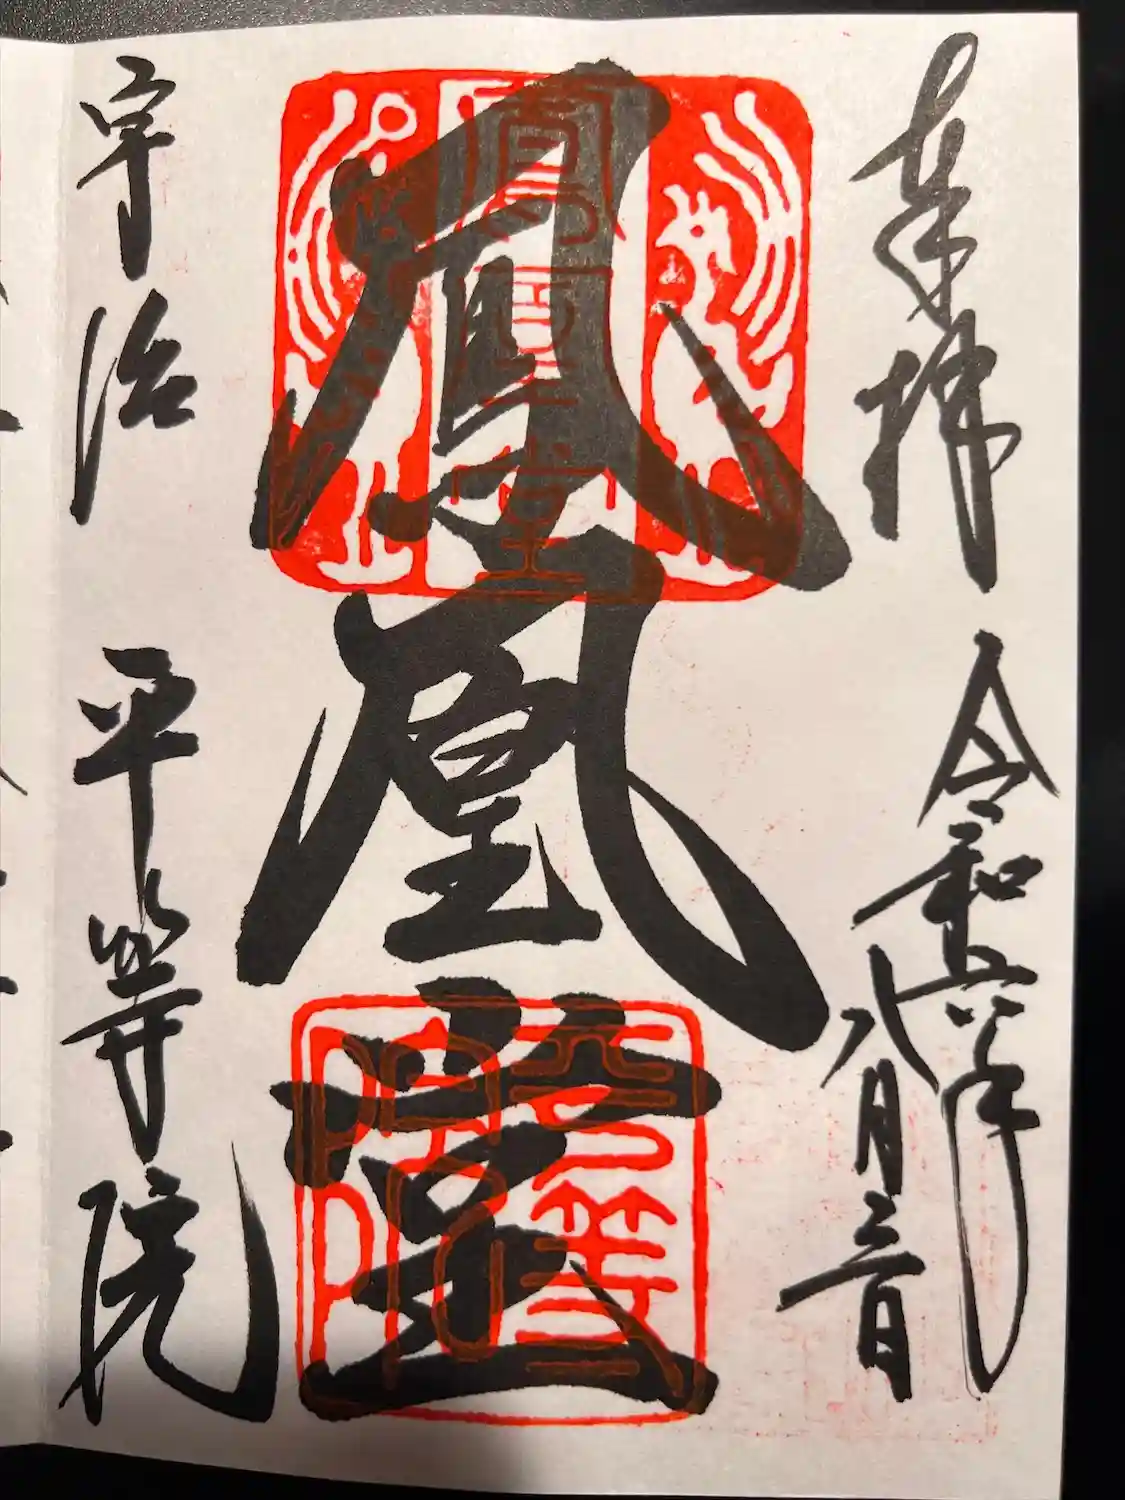 奉拝
令和六年
八月三日
鳳凰堂
鳳凰堂
平等院
宇治 平等院